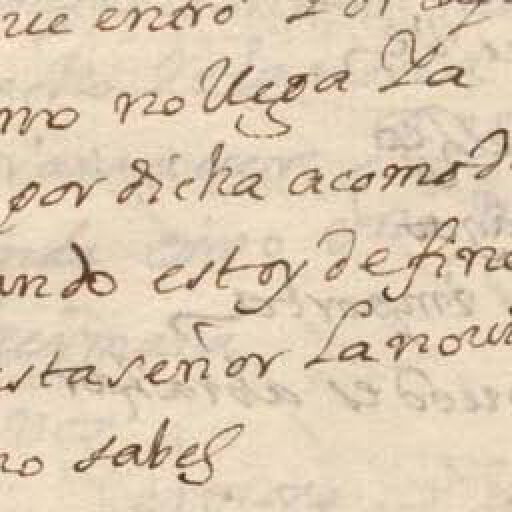 que entro Por
mo no llega Ya
por dicha acomod
ando estoy de fino
esta señor La novi
no sabes